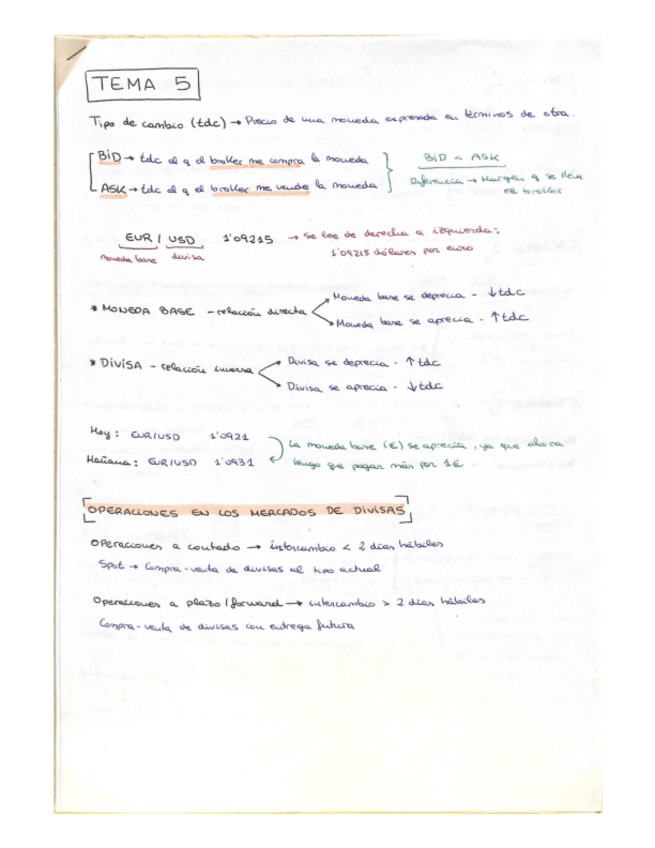 TEMA 5
Tipo de cambio (tdc) → Precio de una moneda expresada en términos de otra.
BID → tdc al q el broker me compra la moneda
ASK → tdc al q el broker me vende la moneda
BID < ASK
Diferencia → Margen q se lleva
el broker
EUR / USD 1'09215 → se lee de derecha a izquierda:
moneda base divisa 1'09215 dólares por euro
* MONEDA BASE - relación directa
Moneda base se deprecia - ↓tdc
Moneda base se aprecia - ↑tdc
* DIVISA - relación inversa
Divisa se deprecia - ↑tdc
Divisa se aprecia - ↓tdc
Hoy: EUR/USD 1'0921
Mañana: EUR/USD 1'0931
La moneda base (€) se aprecia, ya que ahora
tengo que pagar más por 1€
OPERACIONES EN LOS MERCADOS DE DIVISAS
Operaciones a contado → intercambio < 2 días hábiles
Spot → Compra-venta de divisas al tipo actual
Operaciones a plazo / forward → intercambio > 2 días hábiles
Compra-venta de divisas con entrega futura